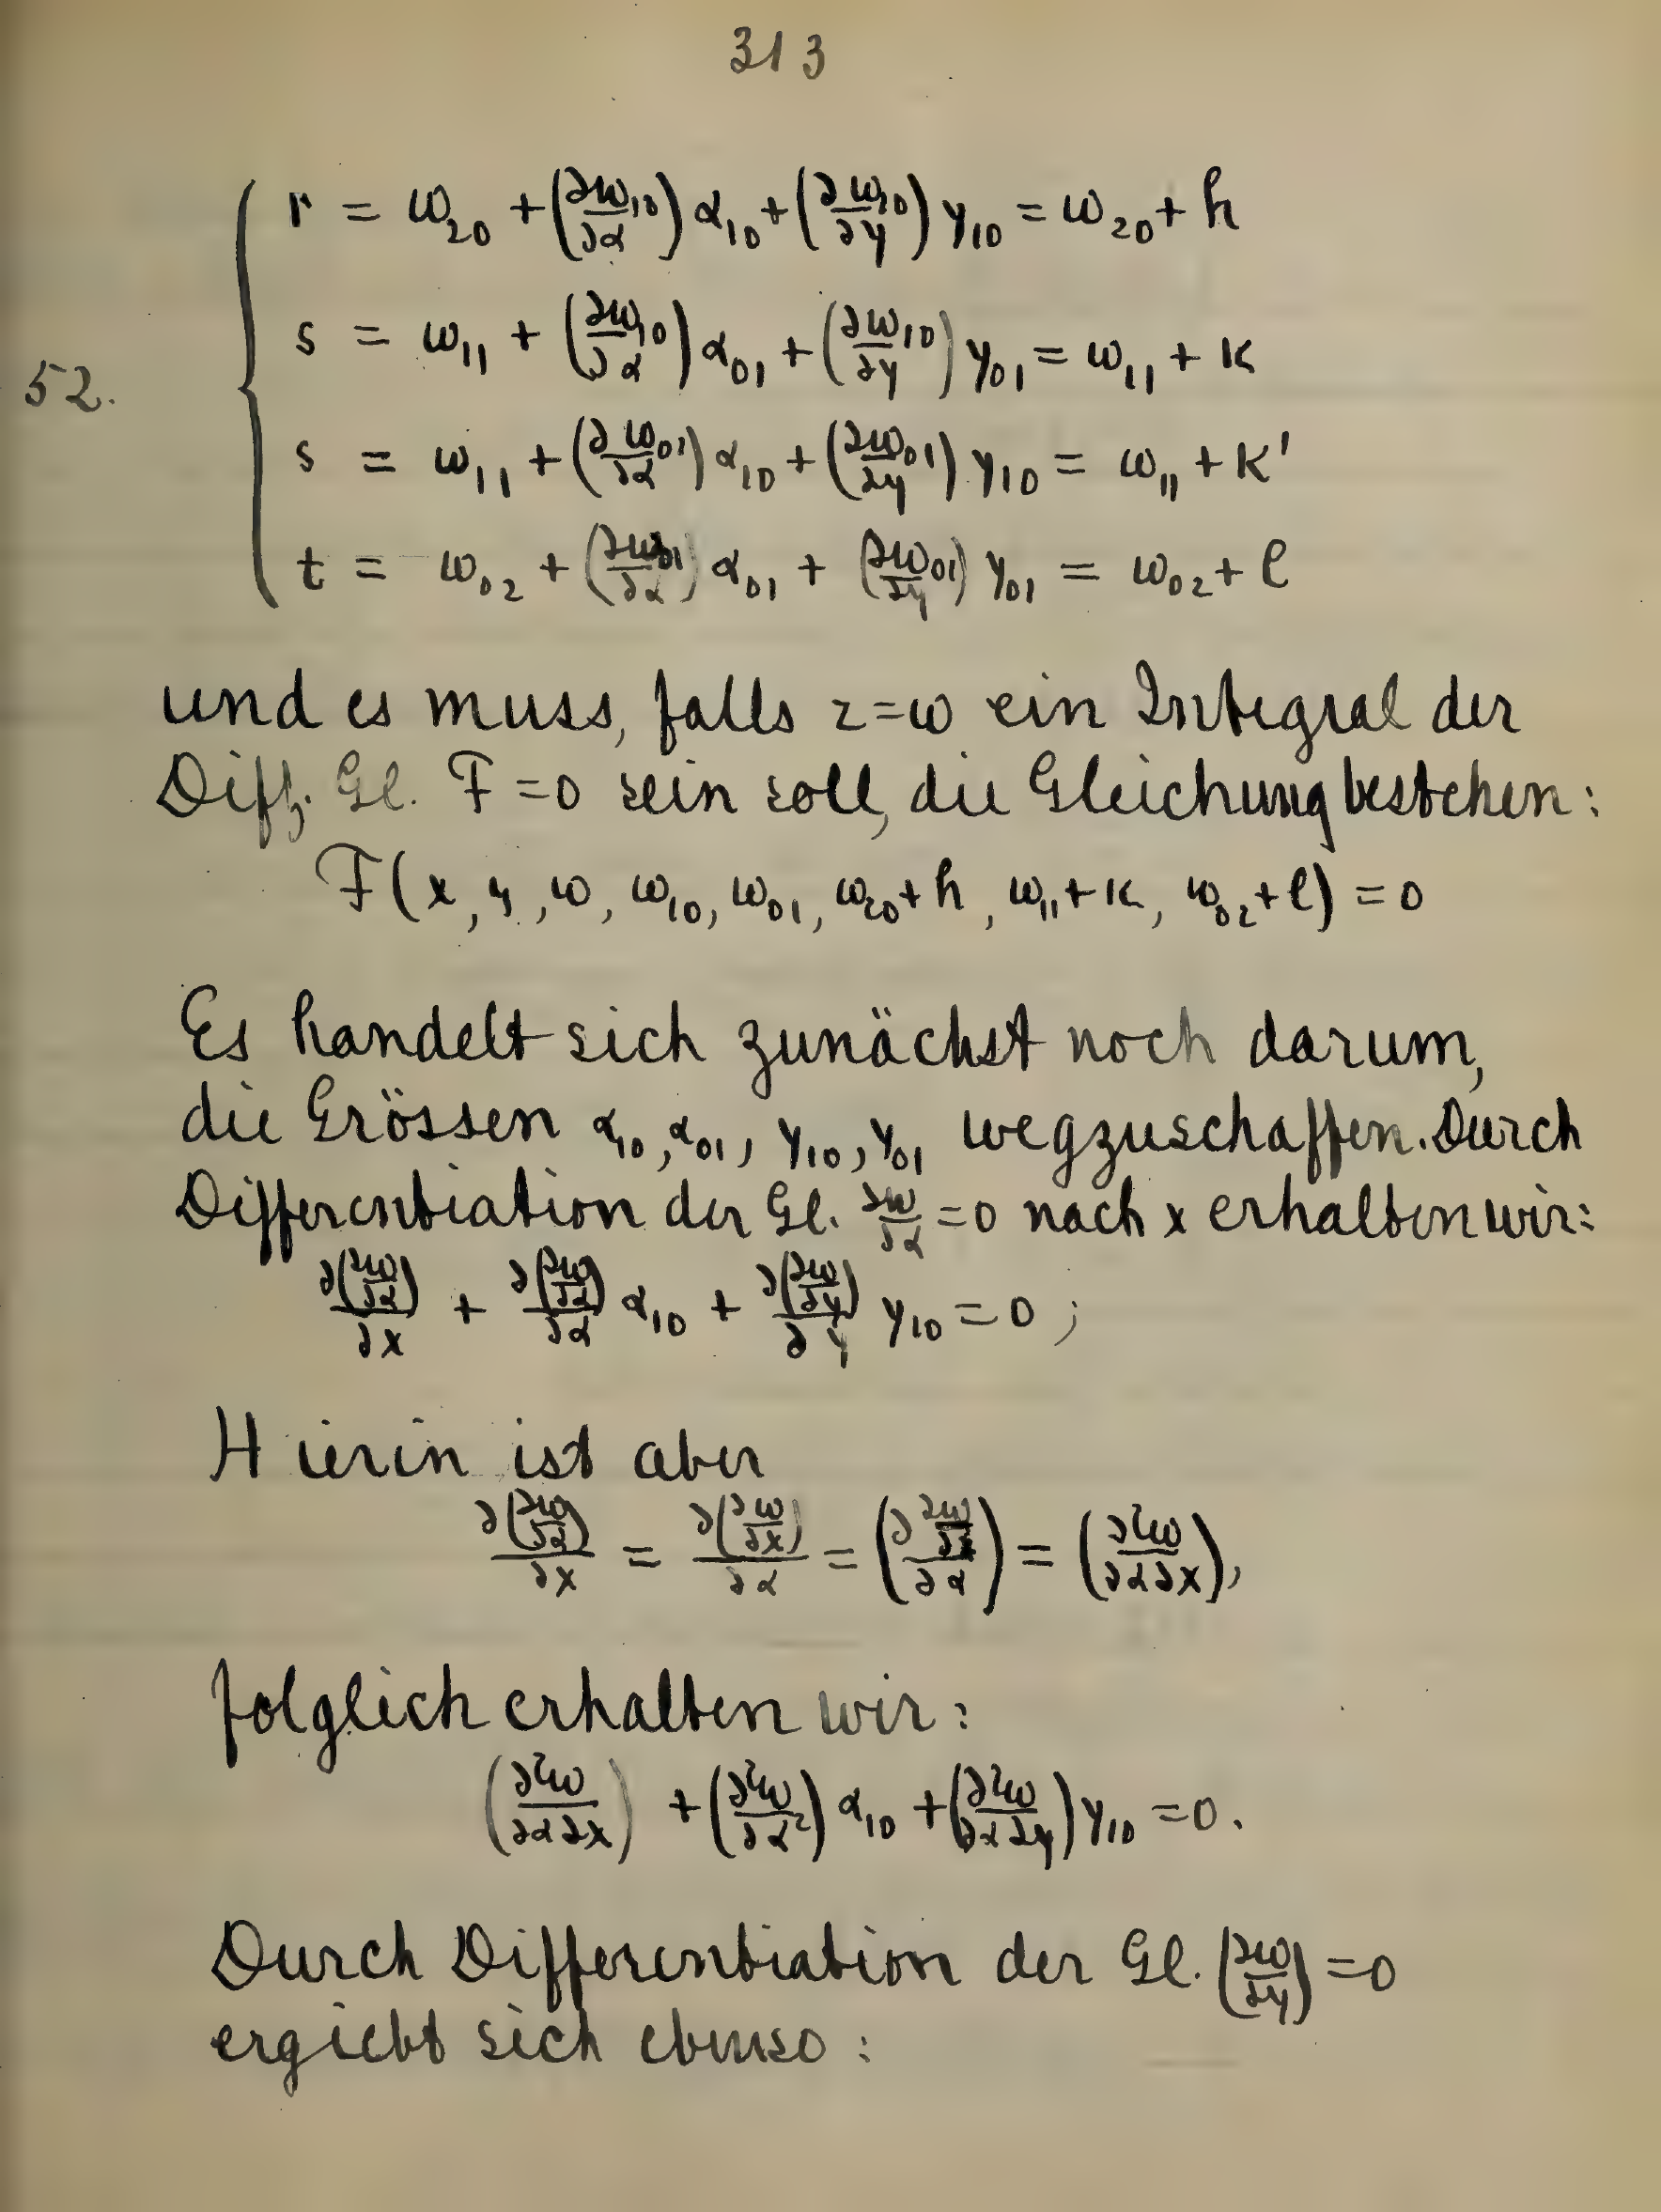 313
r = ω₂₀ + (∂ω₁₀/∂α) α₁₀ + (∂ω₁₀/∂y) y₁₀ = ω₂₀ + h
s = ω₁₁ + (∂ω₁₀/∂α) α₀₁ + (∂ω₁₀/∂y) y₀₁ = ω₁₁ + k
52.
s = ω₁₁ + (∂ω₀₁/∂α) α₁₀ + (∂ω₀₁/∂y) y₁₀ = ω₁₁ + k'
t = ω₀₂ + (∂ω₀₁/∂α) α₀₁ + (∂ω₀₁/∂y) y₀₁ = ω₀₂ + l
und es muss, falls z=ω ein Integral der
Diff. Gl. F = 0 sein soll, die Gleichung bestehen:
F(x, y, ω, ω₁₀, ω₀₁, ω₂₀+h, ω₁₁+k, ω₀₂+l) = 0
Es handelt sich zunächst noch darum,
die Grössen α₁₀, α₀₁, y₁₀, y₀₁ wegzuschaffen. Durch
Differentiation der Gl. ∂ω/∂α = 0 nach x erhalten wir:
∂(∂ω/∂α)/∂x + ∂(∂ω/∂α)/∂α α₁₀ + ∂(∂ω/∂y)/∂y y₁₀ = 0 ;
Hierin ist aber
∂(∂ω/∂α)/∂x = ∂(∂ω/∂x)/∂α = (∂ ∂ω/∂x/∂α) = (∂²ω/∂α∂x),
folglich erhalten wir:
(∂²ω/∂α∂x) + (∂²ω/∂α²) α₁₀ + (∂²ω/∂α∂y) y₁₀ = 0.
Durch Differentiation der Gl. (∂ω/∂y) = 0
ergiebt sich ebenso: